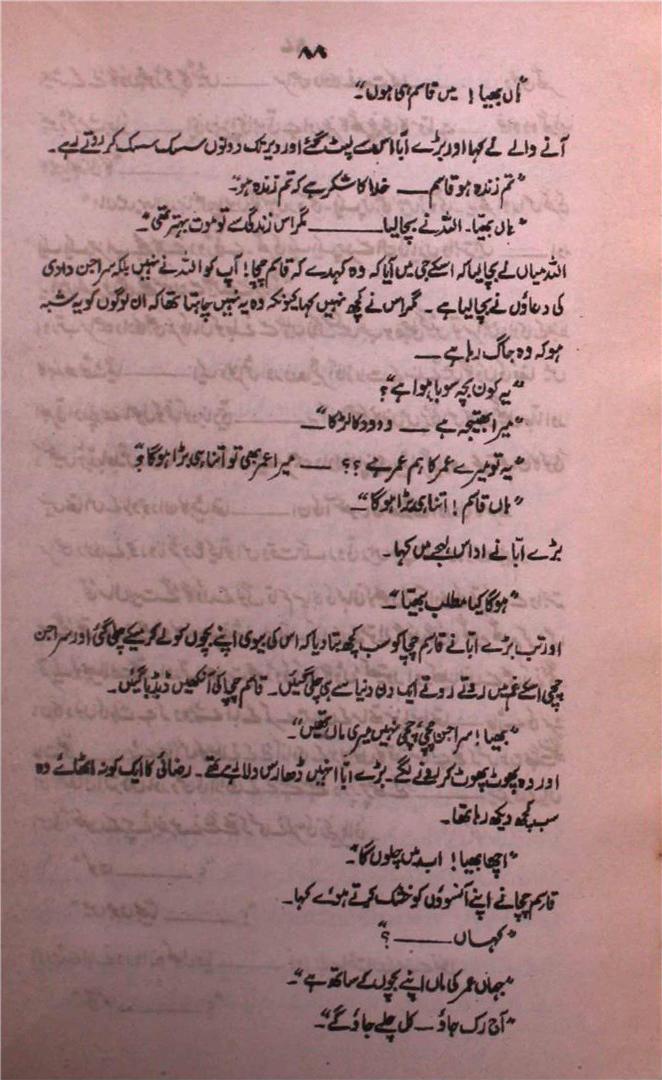 ۸۸
"ہاں بھیا! میں قاسم ہی ہوں"۔
آنے والے نے کہا اور بڑے ابّا اس سے لپٹ گئے اور دیر تک دونوں سسک سسک کر روتے رہے۔
"تم زندہ ہو قاسم ــــ خدا کا شکر ہے کہ تم زندہ ہو"۔
"ہاں بھیّا۔ اللہ نے بچا لیا ــــــــ مگر اس زندگی سے تو موت بہتر تھی"۔
اللہ میاں نے بچا لیا کہ اسکے جی میں آیا کہ وہ کہدے کہ قاسم چچا! آپ کو اللہ نے نہیں بلکہ سراجن دادی
کی دعاؤں نے بچا لیا ہے۔ مگر اس نے کچھ نہیں کہا کیونکہ وہ یہ نہیں چاہتا تھا کہ ان لوگوں کو یہ شبہ
ہو کہ وہ جاگ رہا ہے ــــ
"یہ کون بچہ سویا ہوا ہے"؟
"میرا بھتیجہ ہے ــــ ودود کا لڑکا"ــــ
"یہ تو میرے عمر کا ہم عمر ہے ؟؟ ــــ میرا عمر بھی تو اتنا ہی بڑا ہوگا"؟
"ہاں قاسم! اتنا ہی بڑا ہوگا"ــــ
بڑے ابّا نے اداس لہجے میں کہا۔
"ہوگا کیا مطلب بھیّا"ــــ
اور تب بڑے ابّا نے قاسم چچا کو سب کچھ بتا دیا کہ اس کی بیوی اپنے بچوں کو لے کر میکے چلی گئی اور سراجن
چچی اسکے غم میں روتے روتے ایک دن دنیا سے ہی چلی گئیں۔ قاسم چچا کی آنکھیں ڈبڈبا گئیں۔
"بھیا! سراجن چچی، چچی نہیں میری ماں تھیں"۔
اور وہ پھوٹ پھوٹ کر رونے لگے۔ بڑے ابّا انہیں ڈھارس دلا رہے تھے۔ رضائی کا ایک کونہ اٹھائے وہ
سب کچھ دیکھ رہا تھا۔
"اچھا بھیا! اب میں چلوں گا"۔
قاسم چچا نے اپنے آنسوؤں کو خشک کرتے ہوئے کہا۔
"کہاں ــــــــ ؟"
"جہاں عمر کی ماں اپنے بچوں کے ساتھ ہے"۔
"آج رک جاؤ ــ کل چلے جاؤ گے"ــ